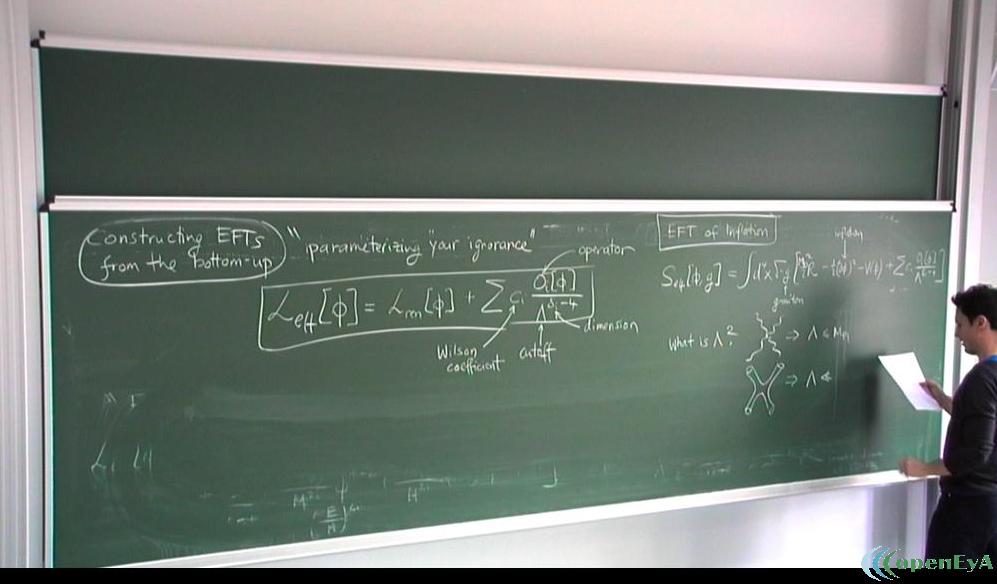 Constructing EFTs
from the bottom-up
"parameterizing "your ignorance"
operator
L_eff[φ] = L_ren[φ] + Σ c_i O_i[φ] / Λ^(δ_i-4)
dimension
Wilson
coefficient
cutoff
EFT of Inflation
inflaton
S_eff[φ,g] = ∫d⁴x √-g [ R - ½(∂φ)² - V(φ) + Σ c_i O_i[φ] / Λ ]
graviton
What is Λ?
⇒ Λ ≤ M_pl
⇒ Λ ≤
E
openEyA